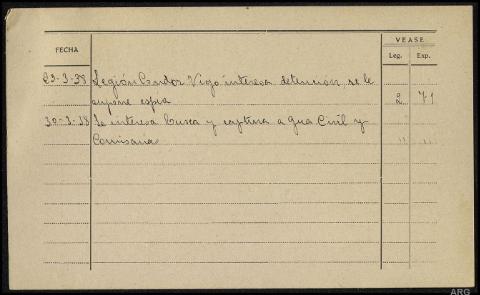 FECHA
VEASE
Leg. Exp.
23-3-38 Legión Condor Vigo interesa detencion, se le
supone espia 2 71
30-3-38 Se interesa busca y captura a Gua Civil y
Comisaria " "
ARG